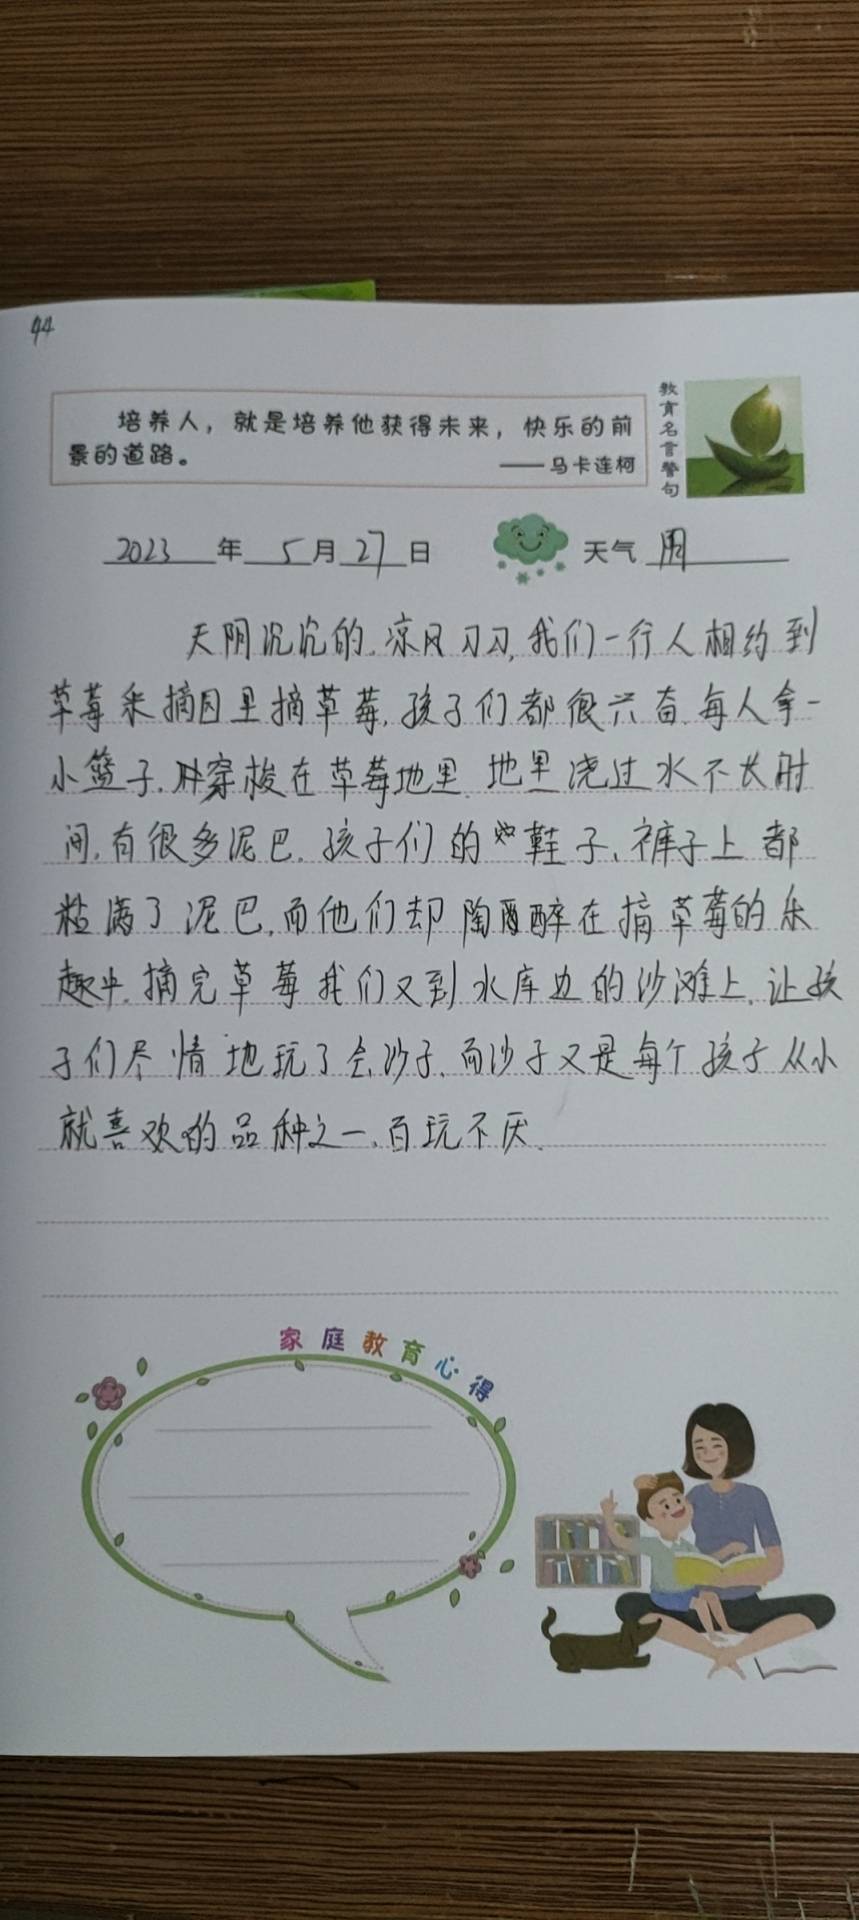 44
培养人，就是培养他获得未来，快乐的前
景的道路。
——马卡连柯
教育名言警句
2023年5月27日 天气 阴
天阴沉沉的.凉风习习,我们一行人相约到
草莓采摘园里摘草莓,孩子们都很兴奋.每人拿一
小篮子.穿梭在草莓地里.地里浇过水不长时
间,有很多泥巴.孩子们的鞋子、裤子上都
粘满了泥巴,而他们却陶醉在摘草莓的乐
趣中.摘完草莓我们又到水库边的沙滩上,让孩
子们尽情地玩了会沙子.而沙子又是每个孩子从小
就喜欢的品种之一,百玩不厌.
家庭教育心得